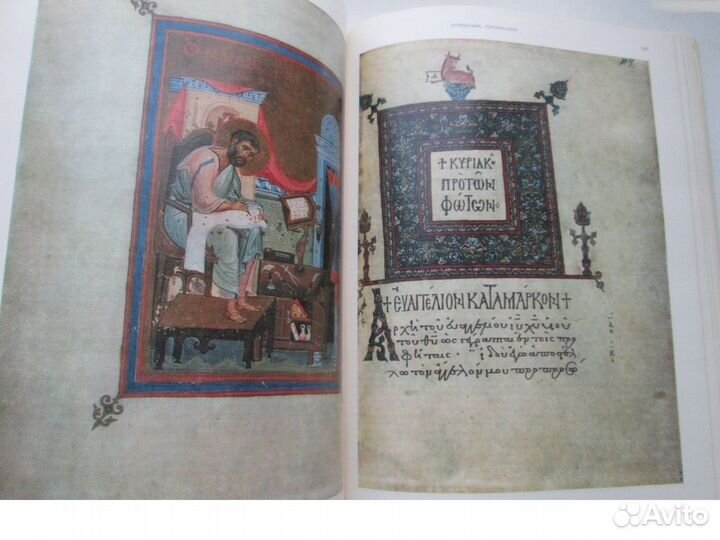 Ο ΜΑΡΚΟΣ
+ ΚΥΡΙΑΚ
ΠΡΟ ΤΩΝ
ΦΩΤΩΝ
+ ΕΥΑΓΓΕΛΙΟΝ ΚΑΤΑ ΜΑΡΚΟΝ +
Ἀρχὴ τοῦ εὐαγγελίου ἰυ χυ υἱοῦ
τοῦ θυ ὡς γέγραπται ἐν τοῖς προ
φήταις · ἰδοὺ ἐγὼ ἀποστέλ
λω τὸν ἄγγελόν μου πρὸ προσώ
Avito